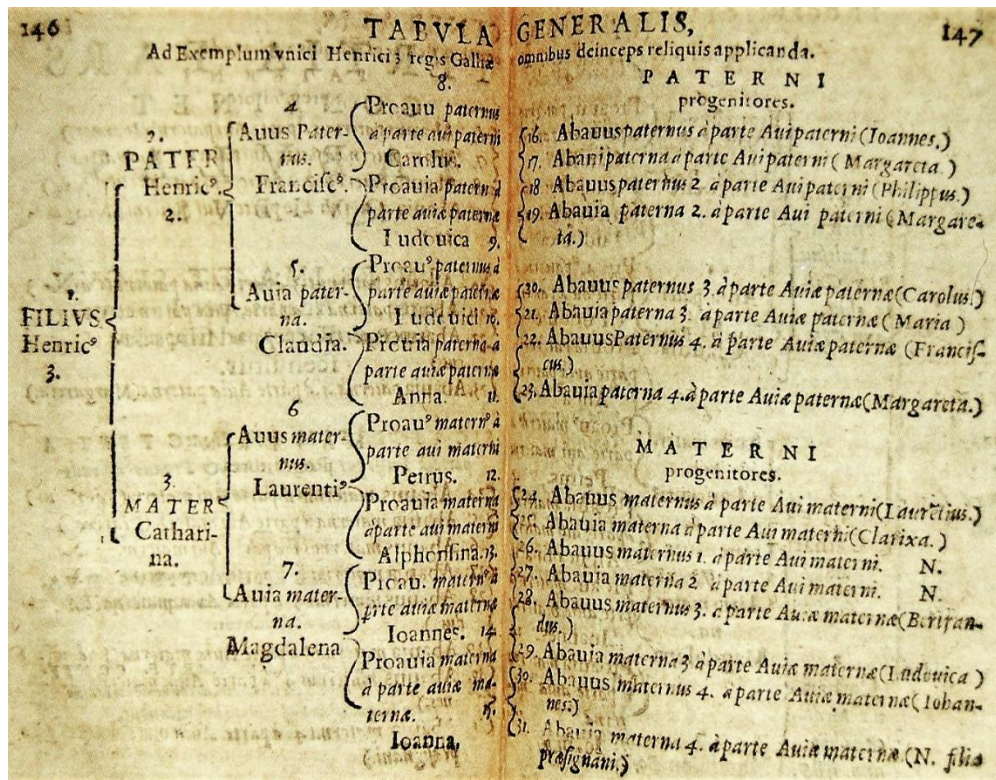 146
TABVLA GENERALIS,
147
Ad Exemplum vnici Henrici 3 regis Galliæ omnibus deinceps reliquis applicanda.
8.
4
Proauu paternus
Auus Pater-
à parte aui paterni
nus.
Carolus.
2.
PATER
Henricꝰ.
2.
Franciscꝰ.
Proauia paterna à
parte auiæ paternæ
Ludouica 9.
5.
Auia pater-
na.
Claudia.
Proauꝰ paternus à
parte auiæ paternæ
Ludouici 10.
paterna à
parte auiæ paternæ
Anna. 11.
1.
FILIVS
Henricꝰ
3.
6
Auus mater-
nus.
Laurentiꝰ
Proauꝰ maternꝰ à
parte aui materni
Petrus. 12.
3.
MATER
Cathari-
na.
Proauia materna
à parte aui materni
Alphonsina. 13.
7.
Auia mater-
na.
Magdalena
Proau. maternꝰ à
prte auiæ maternæ
Ioannes. 14.
Proauia materna
à parte auiæ ma-
ternæ. 15.
Ioanna,
PATERNI
progenitores.
16. Abauus paternus à parte Aui paterni (Ioannes.)
17. Abaui paterna à parte Aui paterni (Margareta.)
18. Abauus paternus 2. à parte Aui paterni (Philippus.)
19. Abauia paterna 2. à parte Aui paterni (Margare-
ta.)
20. Abauus paternus 3. à parte Auiæ paternæ (Carolus.)
21. Abauia paterna 3. à parte Auiæ paternæ (Maria)
22. Abauus Paternus 4. à parte Auiæ paternæ (Francis-
cus.)
23. Abauia paterna 4. à parte Auiæ paternæ (Margareta.)
MATERNI
progenitores.
24. Abauus maternus à parte Aui materni (Laurētius.)
25. Abauia materna à parte Aui materni (Clarixa.)
26. Abauus maternus 1. à parte Aui materni. N.
27. Abauia materna 2 à parte Aui materni. N.
28. Abauus maternus 3. à parte Auiæ maternæ (Bertran-
dus.)
29. Abauia materna 3 à parte Auiæ maternæ (Ludouica)
30. Abauus maternus 4. à parte Auiæ maternæ (Iohan-
nes.)
31. Abauia materna 4. à parte Auiæ maternæ (N. filia
præsignani.)